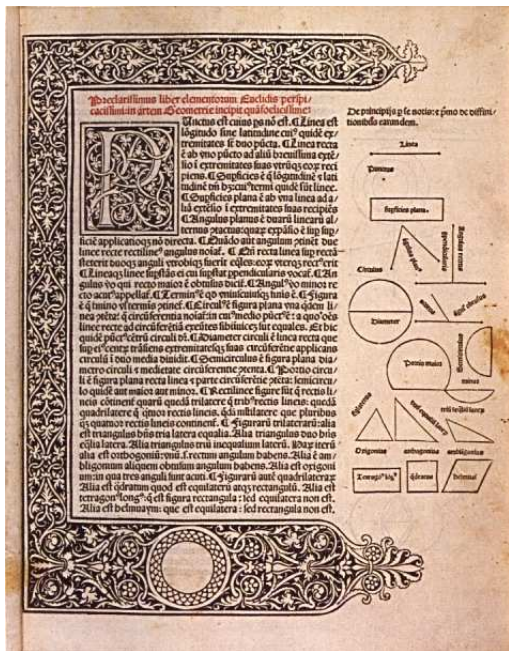 Preclarissimus liber elementorum Euclidis perspi/
cacissimi: in artem Geometrie incipit quãfoelicissime:
Punctus est cuius ps nõ est. ¶ Linea est
lõgitudo sine latitudine cui⁹ quidẽ ex/
tremitates sũt duo pũcta. ¶ Linea recta
ẽ ab vno pũcto ad aliũ breuissima extẽ/
sio ĩ extremitates suas vtrũqz eorũ reci
piens. ¶ Supficies ẽ q̃ lõgitudinẽ τ lati
tudinẽ tm̃ hz: cui⁹ termi quidẽ sũt linee.
¶ Supficies plana ẽ ab vna linea ad a/
liã extẽsio ĩ extremitates suas recipiẽs
¶ Angulus planus ẽ duarũ linearũ al/
ternus ptactus: quarũ expãsio ẽ sup sup/
ficiẽ applicatioqz nõ directa. ¶ Quãdo aũt angulum ptinẽt due
linee recte rectiline⁹ angulus noiat̃. ¶ Qñ recta linea sup rectã
steterit duoqz anguli vtrobiqz fuerit eq̃les: eorũ vterqz rect⁹ erit
¶ Lineaqz linee supstãs ei cui supstat ppendicularis vocat̃. ¶ An
gulus vo qui recto maior ẽ obtusus dicit̃. ¶ Angul⁹ vo minor re
cto acut⁹ appellat̃. ¶ Termin⁹ ẽ qd vniuscuiusqz finis ẽ. ¶ Figura
ẽ q̃ tmino vl termis ptinet̃. ¶ Circul⁹ ẽ figura plana vna q̃dem li/
nea ptẽta: q̃ circũferentia noiat̃: in cui⁹ medio pũct⁹ ẽ: a quo oẽs
linee recte ad circũferẽtiã exeũtes sibiĩuicẽ sũt equales. Et hic
quidẽ pũct⁹ cẽtrũ circuli dr̃. ¶ Diameter circuli ẽ linea recta que
sup ei⁹ centr̃ trãsiens extremitatesqz suas circũferẽtie applicans
circulũ ĩ duo media diuidit. ¶ Semicirculus ẽ figura plana dia/
metro circuli τ medietate circũferentie ptenta. ¶ Portio circu/
li ẽ figura plana recta linea τ parte circũferẽtie ptẽta: semicircu/
lo quidẽ aut maior aut minor. ¶ Rectilinee figure sũt q̃ rectis li/
neis cõtinent̃ quarũ quedã trilatere q̃ trib⁹ rectis lineis: quedã
quadrilatere q̃ q̃tuor rectis lineis. q̃dã mĩtilatere que pluribus
qz quatuor rectis lineis continent̃. ¶ Figurarũ trilaterarũ: alia
est triangulus hñs tria latera equalia. Alia triangulus duo hñs
eq̃lia latera. Alia triangulus triũ inequalium laterũ. Harũ iterũ
alia est orthogoniũ: vnũ .s. rectum angulum habens. Alia ẽ am/
bligonium aliquem obtusum angulum habens. Alia est oxigoni
um: in qua tres anguli sunt acuti. ¶ Figurarũ aũtẽ quadrilaterarũ
Alia est q̃dratum quod est equilaterũ atqz rectangulũ. Alia est
tetragon⁹ long⁹: q̃ est figura rectangula: sed equilatera non est.
Alia est helmuaym: que est equilatera: sed rectangula non est.
De principijs p se notis: τ pmo de diffini/
tionibus earundem.
Linea
Punctus
Supficies plana.
Circulus
Diameter
Portio maior
minor
Oxigonius
orthogonius
ambligonius
q̃dratus
helmuaym